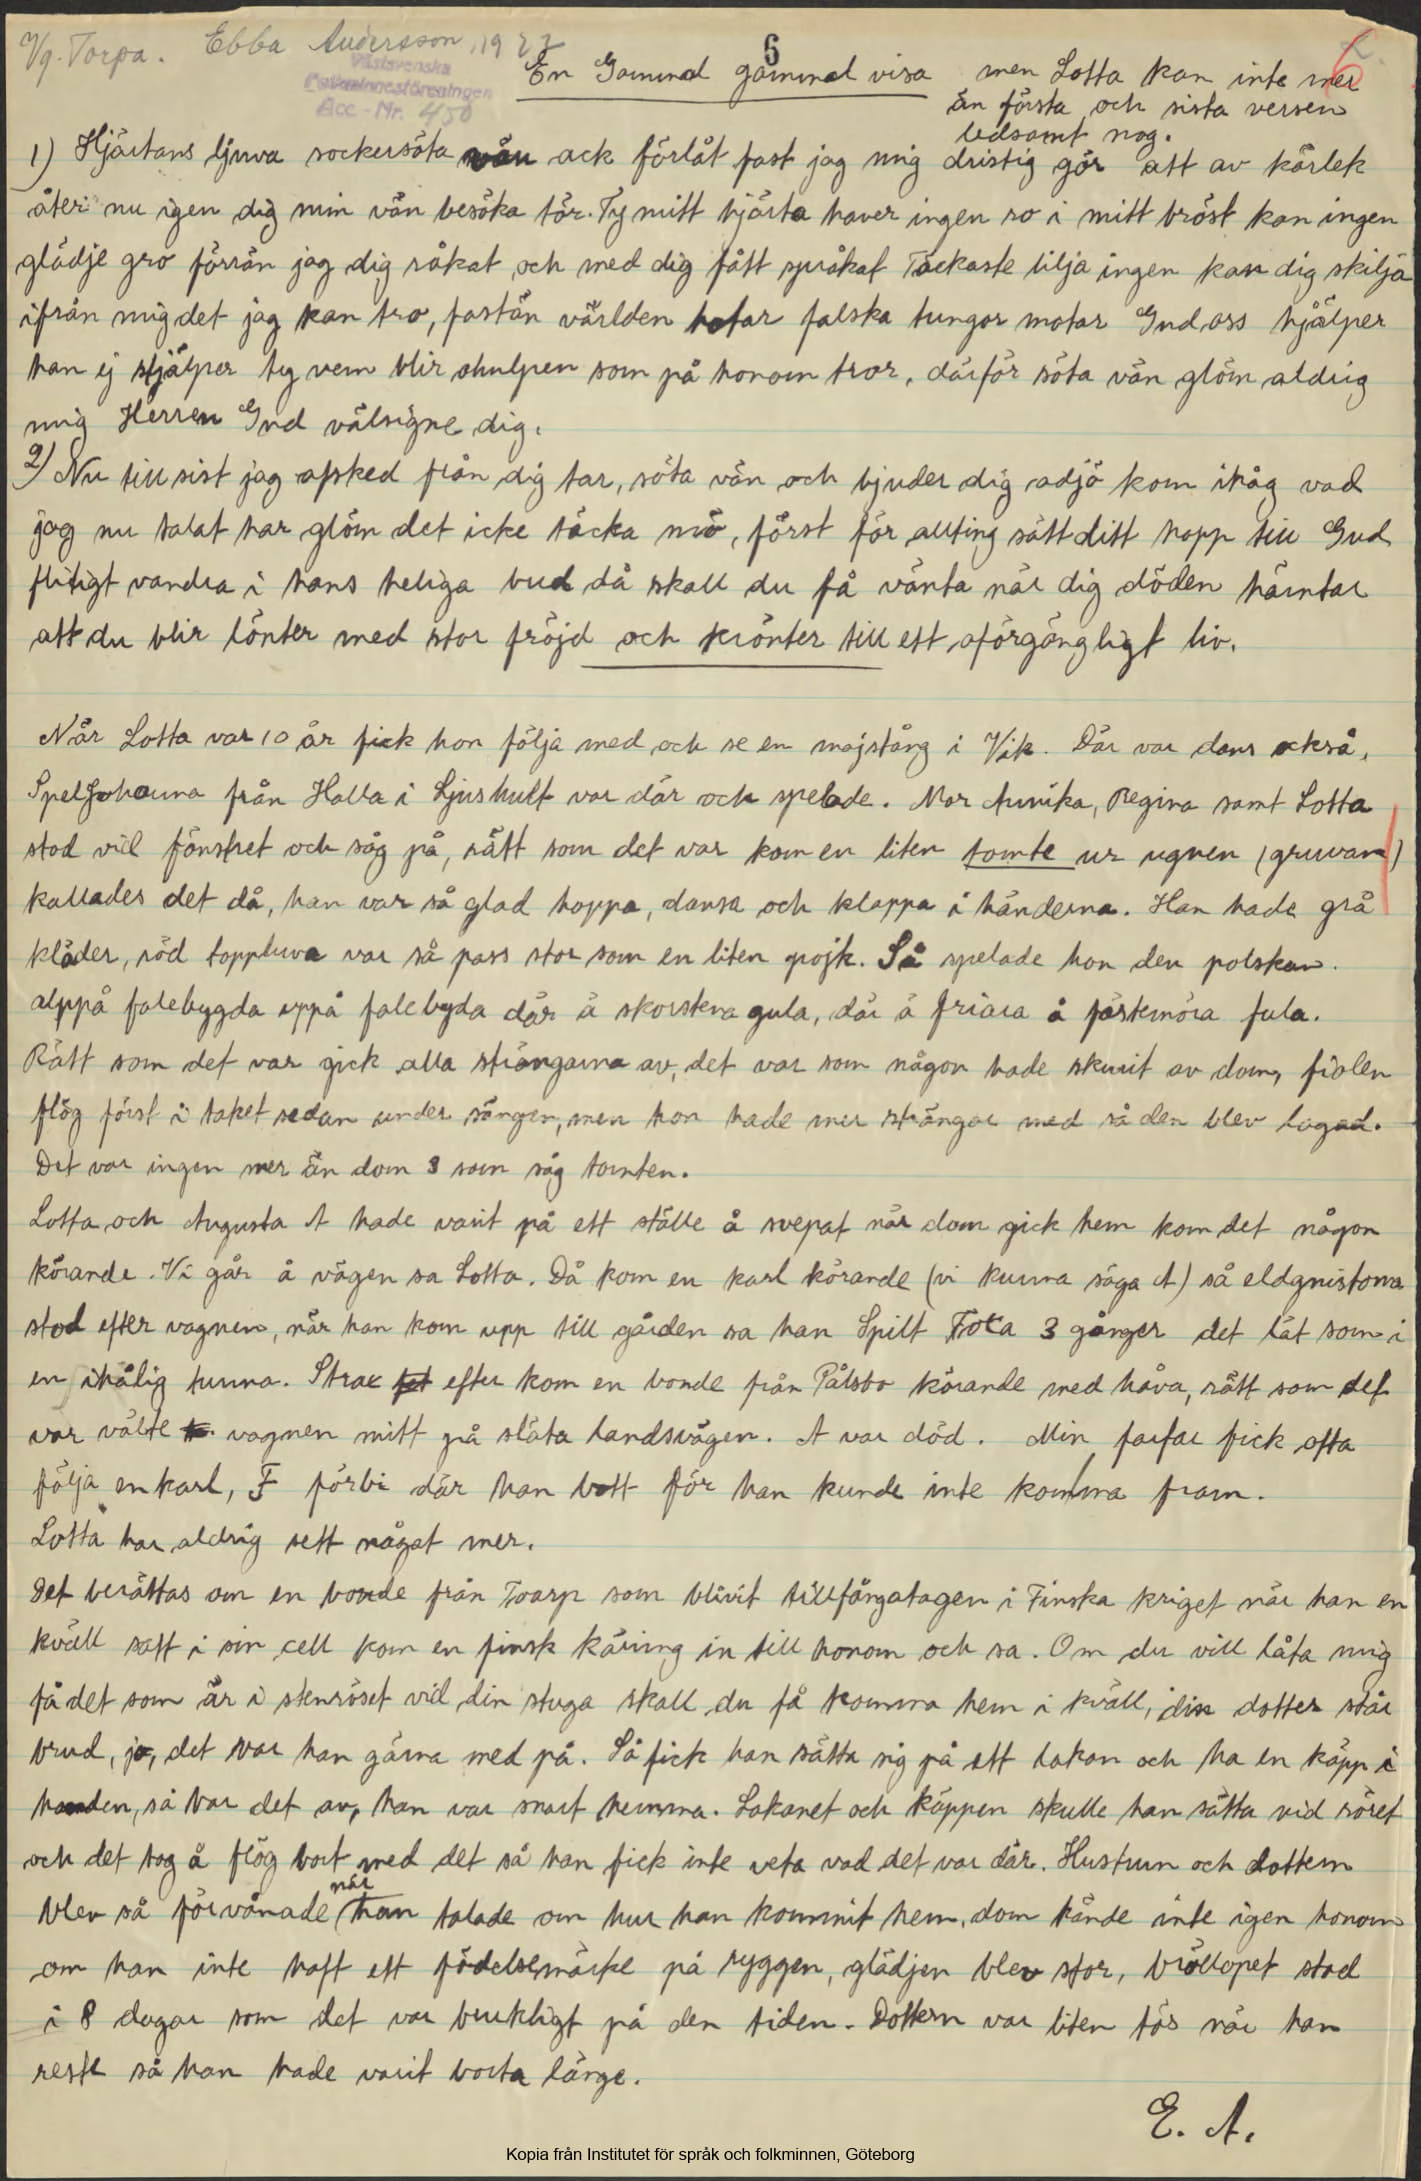 Vg. Torpa. Ebba Andersson, 1927
Västsvenska
Folkminnesföreningen
Acc-Nr. 450
6
En Gammal gammal visa men Lotta kan inte mer
än första och sista versen
ledsamt nog.
1) Hjärtans ljuva sockersöta vän ack förlåt fast jag mig dristig gör att av kärlek
åter nu igen dig min vän besöka tör. Ty mitt hjärta haver ingen ro i mitt bröst kan ingen
glädje gro förrän jag dig råkat och med dig fått språkat Täckaste lilja ingen kan dig skilja
ifrån mig det jag kan tro, fastän världen hotar falska tungor motar Gud oss hjälper
han ej stjälper ty vem blir ohulpen som på honom tror, därför söta vän glöm aldrig
mig Herren Gud välsigne dig.
2) Nu till sist jag afsked från dig tar, söta vän och bjuder dig adjö kom ihåg vad
jag nu talat har glöm det icke täcka mö, först för allting sätt ditt hopp till Gud
flitigt vandra i hans heliga bud då skall du få vänta när dig döden hämtar
att du blir lönter med stor fröjd och krönter till ett oförgängligt liv.
När Lotta var 10 år fick hon följa med och se en majstång i Vik. Där var dans också,
SpelJohanna från Halla i Ljushult var där och spelade. Mor Annika, Regina samt Lotta
stod vid fönstret och såg på, rätt som det var kom en liten tomte ur ugnen (gruvan)
kallades det då, han var så glad hoppa, dansa och klappa i händerna. Han hade grå
kläder, röd toppluva var så pass stor som en liten pojk. Så spelade hon den polskan.
uppå falebygda uppå falebyda där ä skorstena gula, där ä friara å fästemöra fula.
Rätt som det var gick alla strängarna av, det var som någon hade skurit av dom, fiolen
flög först i taket sedan under sängen, men hon hade mer strängar med så den blev lagad.
Det var ingen mer än dom 3 som såg tomten.
Lotta och Augusta A hade varit på ett ställe å svepat när dom gick hem kom det någon
körande. Vi går å vägen sa Lotta. Då kom en karl körande (vi kunna säga A) så eldgnistorna
stod efter vagnen, när han kom upp till gården sa han Spilt Tota 3 gånger det lät som i
en ihålig tunna. Strax efter kom en bonde från Pålsbo körande med håva, rätt som det
var välte vagnen mitt på släta landsvägen. A var död. Min farfar fick ofta
följa en karl, F förbi där han bott för han kunde inte komma fram.
Lotta har aldrig sett något mer.
Det berättas om en bonde från Toarp som blivit tillfångatagen i Finska kriget när han en
kväll satt i sin cell kom en finsk käring in till honom och sa. Om du vill låta mig
få det som är i stenröset vid din stuga skall du få komma hem i kväll, din dotter står
brud, jo, det var han gärna med på. Så fick han sätta sig på ett lakan och ha en käpp i
handen, så bar det av, han var snart hemma. Lakanet och käppen skulle han sätta vid röset
och det tog å flög bort med det så han fick inte veta vad det var där. Hustrun och dottern
blev så förvånade när han talade om hur han kommit hem, dom kände inte igen honom
om han inte haft ett födelsemärke på ryggen, glädjen blev stor, bröllopet stod
i 8 dagar som det var brukligt på den tiden. Dottern var liten tös när han
reste så han hade varit borta länge.
E. A.
Kopia från Institutet för språk och folkminnen, Göteborg